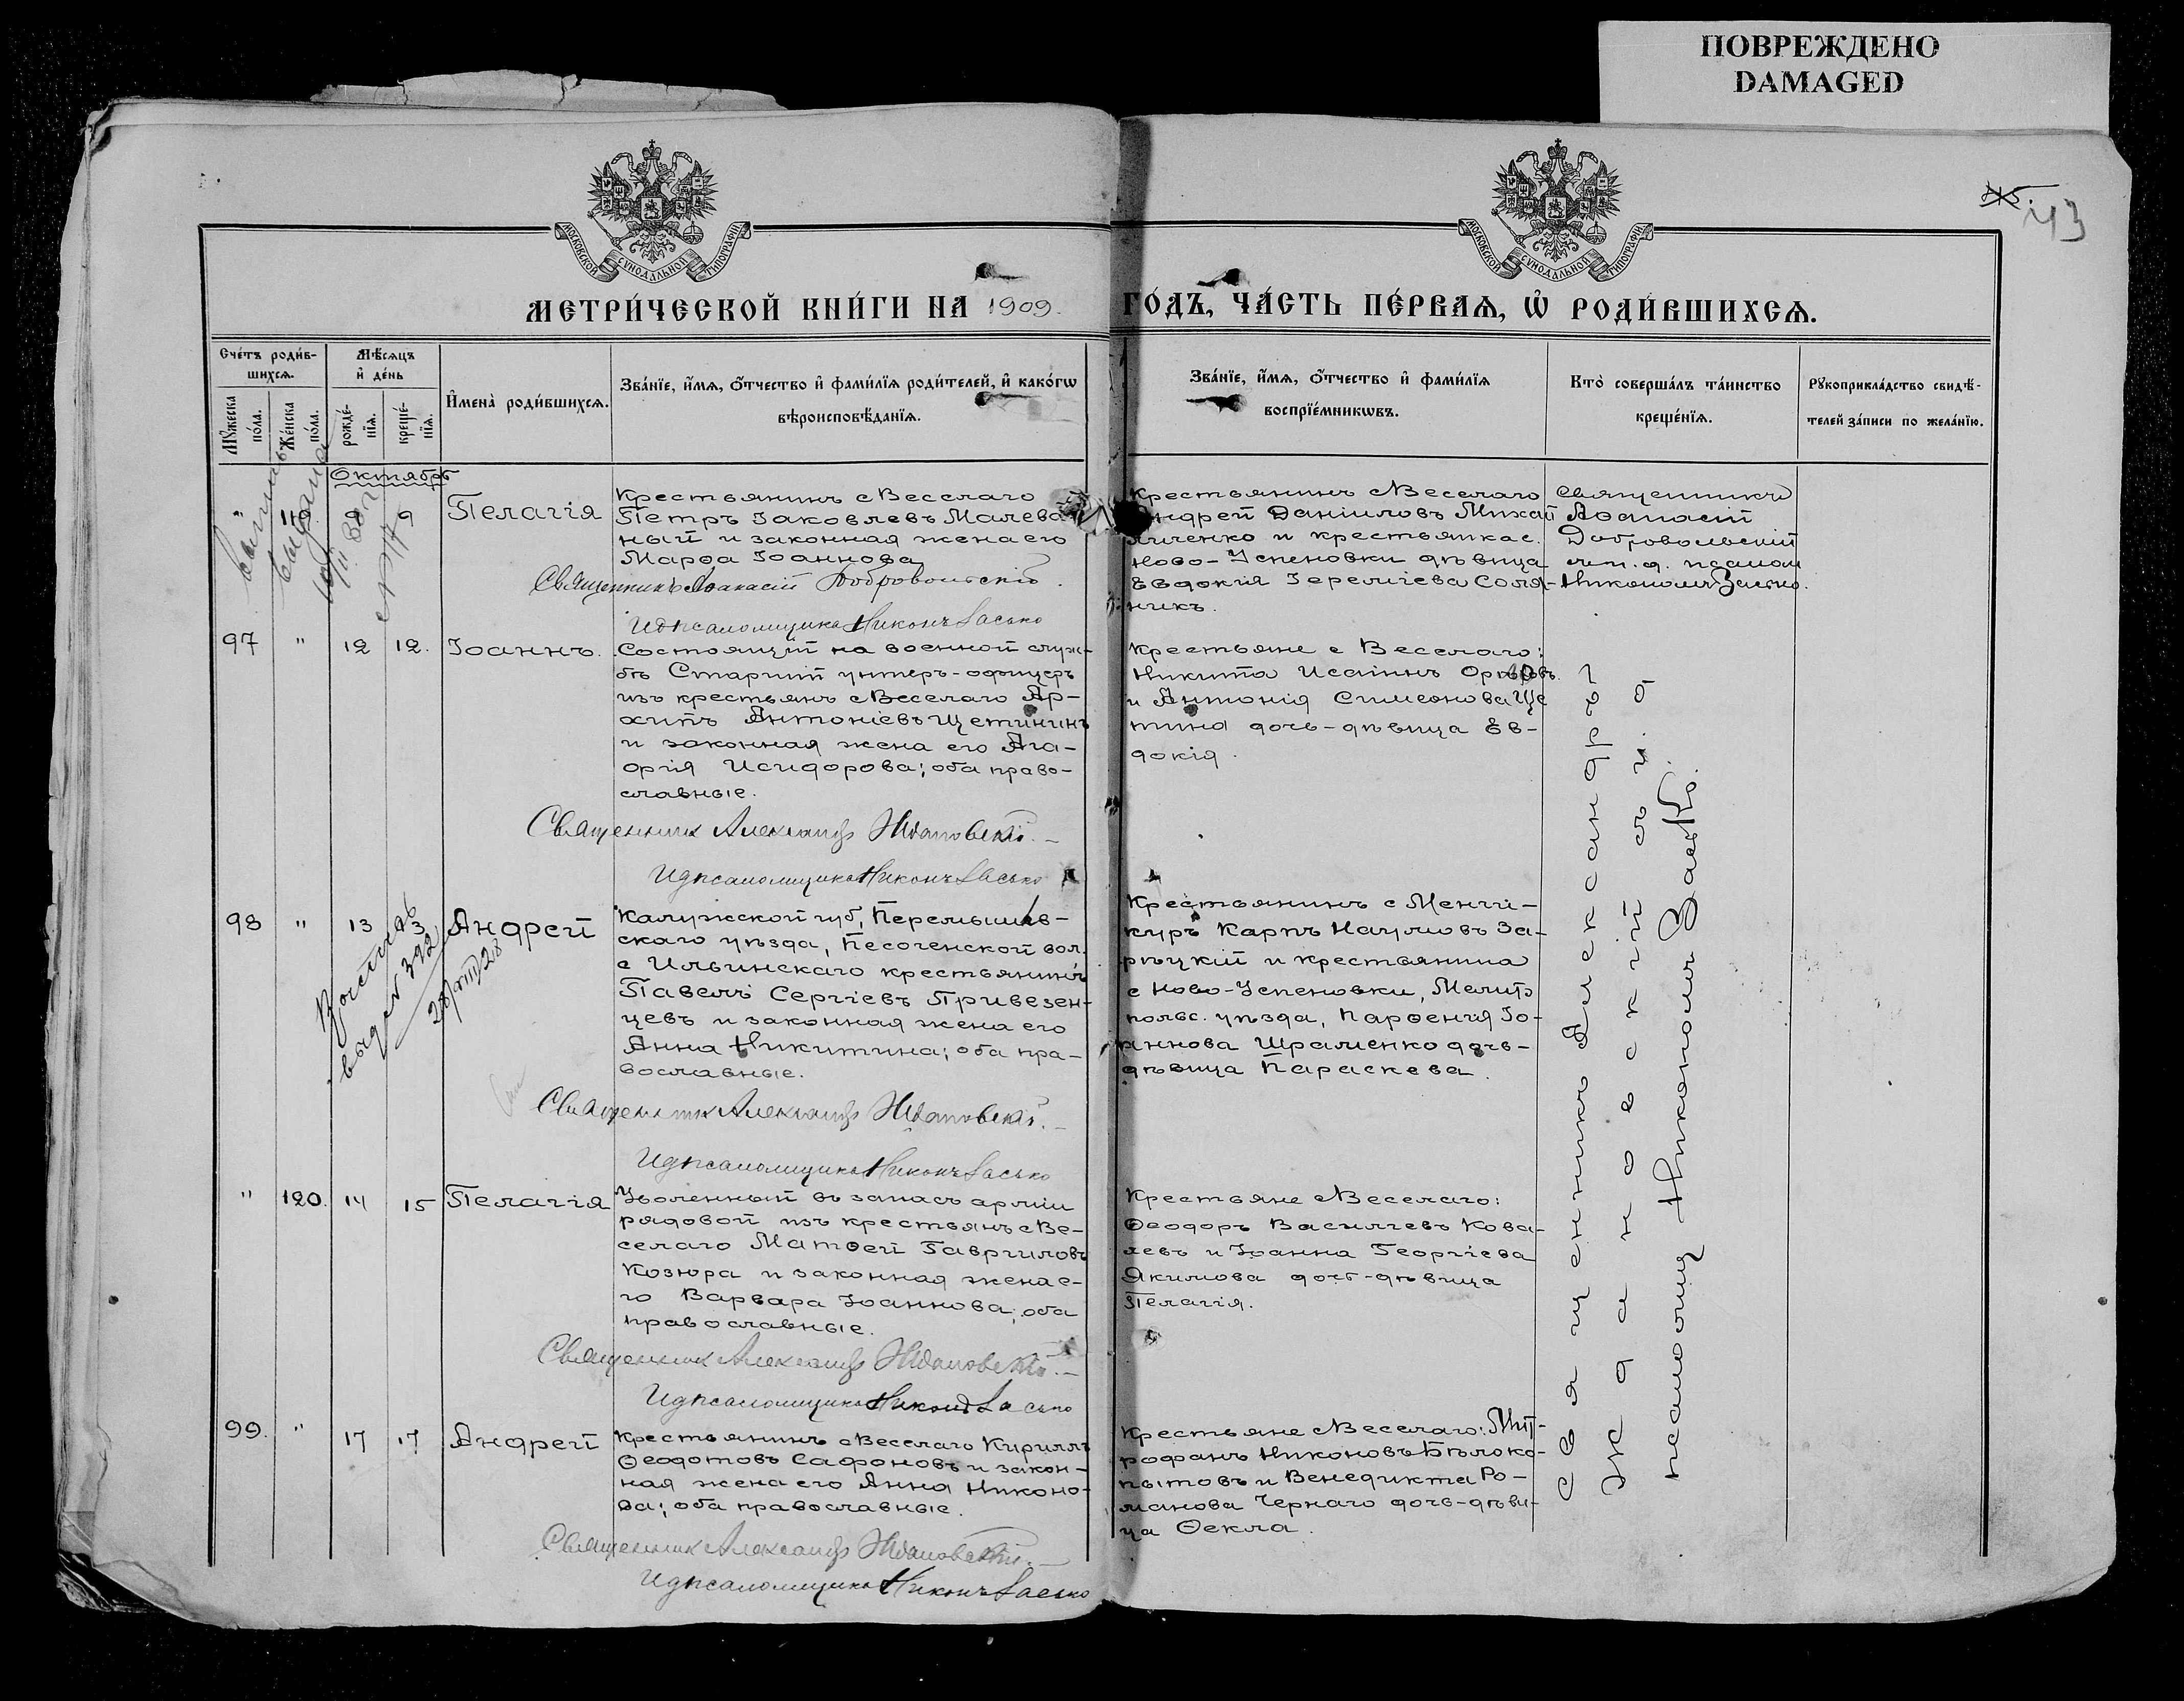 ПОВРЕЖДЕНО
DAMAGED
МОСКОВСКОЙ СѴНОДАЛЬНОЙ ТИПОГРАФІИ
МОСКОВСКОЙ СѴНОДАЛЬНОЙ ТИПОГРАФІИ
45.
43
МЕТРИ́ЧЕСКОЙ КНИ́ГИ НА 1909. ГО́ДЪ, ЧА́СТЬ ПЕ́РВАЯ, Ѽ РОДИ́ВШИХСЯ.
Сче́тъ роди́в-
шихся.
Мѣ́сяцъ
и҆ де́нь
Мꙋ́жеска
по́ла.
Же́нска
по́ла.
рожде́-
нїя.
креще́-
нїя.
И҆мена̀ роди́вшихся.
Зва́нїе, и҆́мя, ѻ҆́тчество и҆ фами́лїя роди́телей, и҆ како́гѡ
вѣроисповѣ́данїя.
Зва́нїе, и҆́мя, ѻ҆́тчество и҆ фами́лїя
воспрїе́мникѡвъ.
Кто̀ соверша́лъ та́инство
креще́нїя.
Рꙋкоприкла́дство свидѣ́-
телей за́писи по жела́нїю.
Октябрь
" 119. 9 9 Пелагія
Крестьянинъ с Веселаго
Петръ Іаковлевъ Малева-
ный и законная жена его
Марѳа Іоаннова
Священникъ Аѳанасій Добровольскій.
И д псаломщика Никонъ Засько
Крестьянинъ с Веселаго
Андрей Даніиловъ Михай
личенко и крестьянка с.
Ново-Успеновки дѣвица
Евдокія Іереміева Соля-
никъ.
Священникъ
Аѳанасій
Добровольскій
с и. д. псалом
Никономъ Засько.
97 " 12 12. Іоаннъ.
Состоящій на военной служ-
бѣ Старшій унтеръ-офицеръ
изъ крестьянъ с Веселаго Ар-
хипъ Антоніевъ Щетининъ
и законная жена его Ага-
фія Исидорова; оба право-
славные.
Священник Александр Ждановскій.—
И д псаломщика Никонъ Засько
Крестьяне с Веселаго:
Никита Исаинъ Орловъ.
и Антонія Симеонова Ще
тина дочь-дѣвица Ев-
докія.
98 " 13 13 Андрей
выд № 392
28/VIII 28
Калужской губ, Перемышль-
скаго уѣзда, Песоченской вол.
с Ильинскаго крестьянинъ
Павелъ Сергіевъ Привезен-
цевъ и законная жена его
Анна Никитина; оба пра-
вославные.
Священник Александр Ждановскій.—
И д псаломщика Никонъ Засько
Крестьянинъ с Менчи-
куръ Карпъ Наумовъ За-
рѣцкій и крестьянина
с Ново-Успеновки, Мелито
польс. уѣзда, Парѳенія Іо-
аннова Шраменко дочь-
дѣвица Параскева.
" 120. 14 15 Пелагія
Уволенный въ запасъ арміи
рядовой изъ крестьянъ с Ве-
селаго Матѳей Гавриловъ
Козюра и законная жена е-
го Варвара Іоаннова; оба
православные.
Священник Александр Ждановскій.—
И д псаломщика Никонъ Засько
Крестьяне с Веселаго:
Ѳеодоръ Василіевъ Кова-
левъ и Іоанна Георгіева
Якимова дочь-дѣвица
Пелагія.
99. " 17 17 Андрей
Крестьянинъ с Веселаго Кириллъ
Ѳеодотовъ Сафоновъ и закон-
ная жена его Анна Никоно-
ва; оба православные.
Священник Александр Ждановскій.—
И д псаломщика Никонъ Засько
Крестьяне с Веселаго: Мит-
рофанъ Никоновъ Бѣлоко-
пытовъ и Венедикта Ро-
манова Чернаго дочь-дѣви-
ца Ѳекла.
Священникъ Александръ
Ждановскій съ и. д.
псаломщ Никономъ Засько.